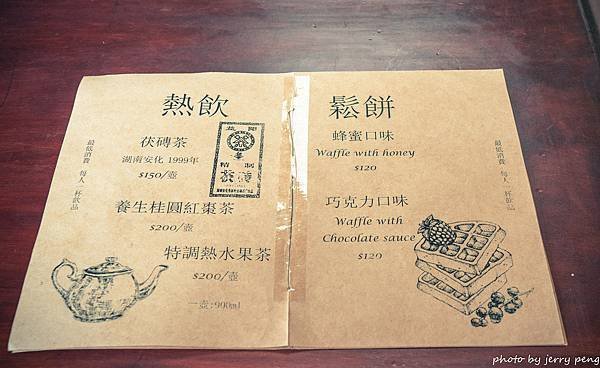 熱飲
茯磚茶
湖南安化 1999年
$150/壺
養生桂圓紅棗茶
$200/壺
特調熱水果茶
$200/壺
一壺:900ml
最低消費 每人一杯飲品
鬆餅
蜂蜜口味
Waffle with honey
$120
巧克力口味
Waffle with
Chocolate sauce
$120
最低消費 每人一杯飲品
photo by jerry peng